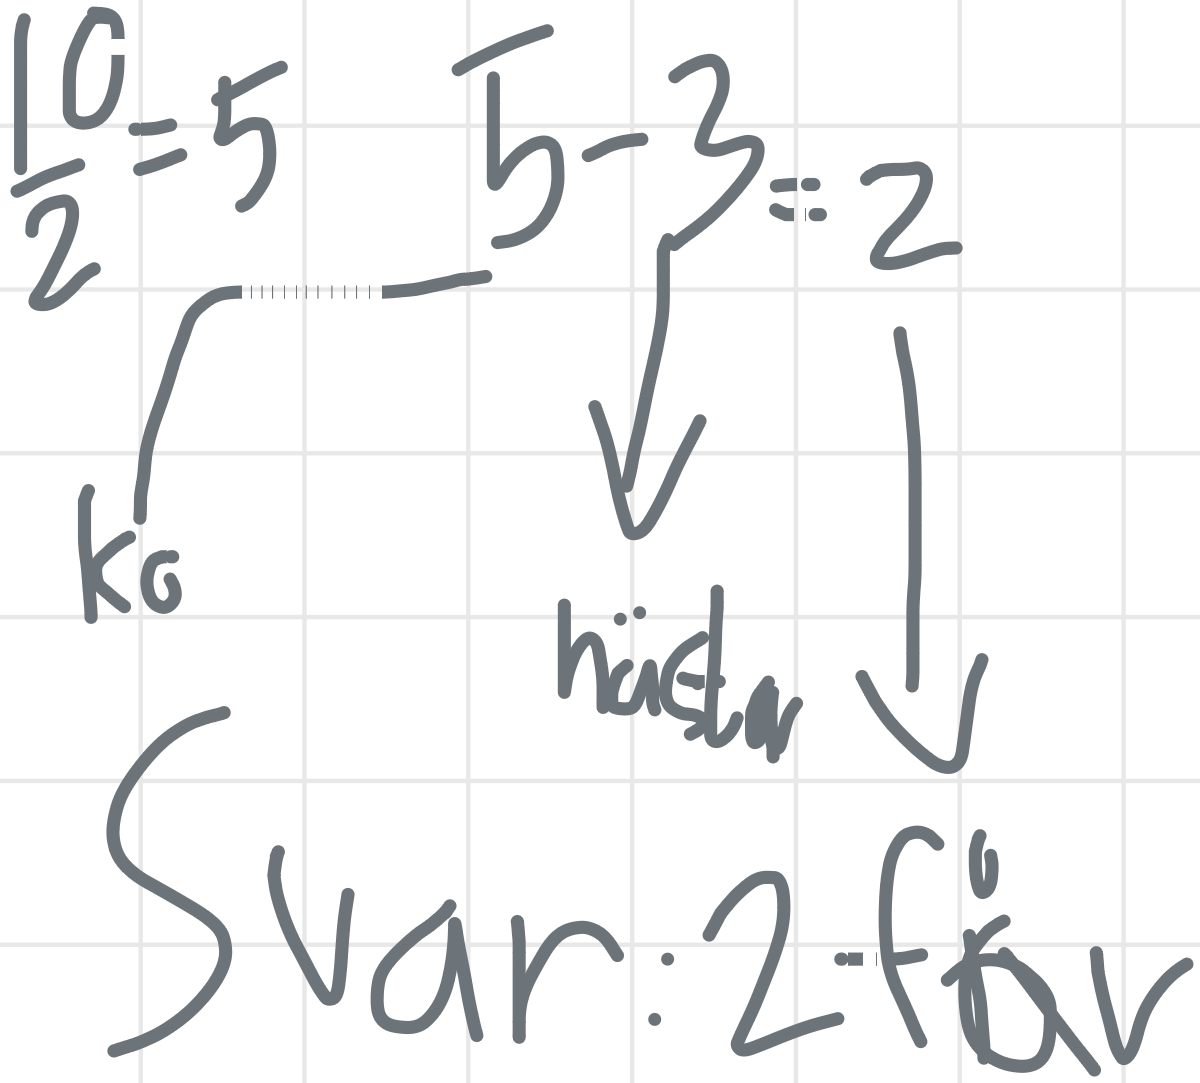 10/2 = 5
5 - 3 = 2
ko
hästar
Svar: 2 får